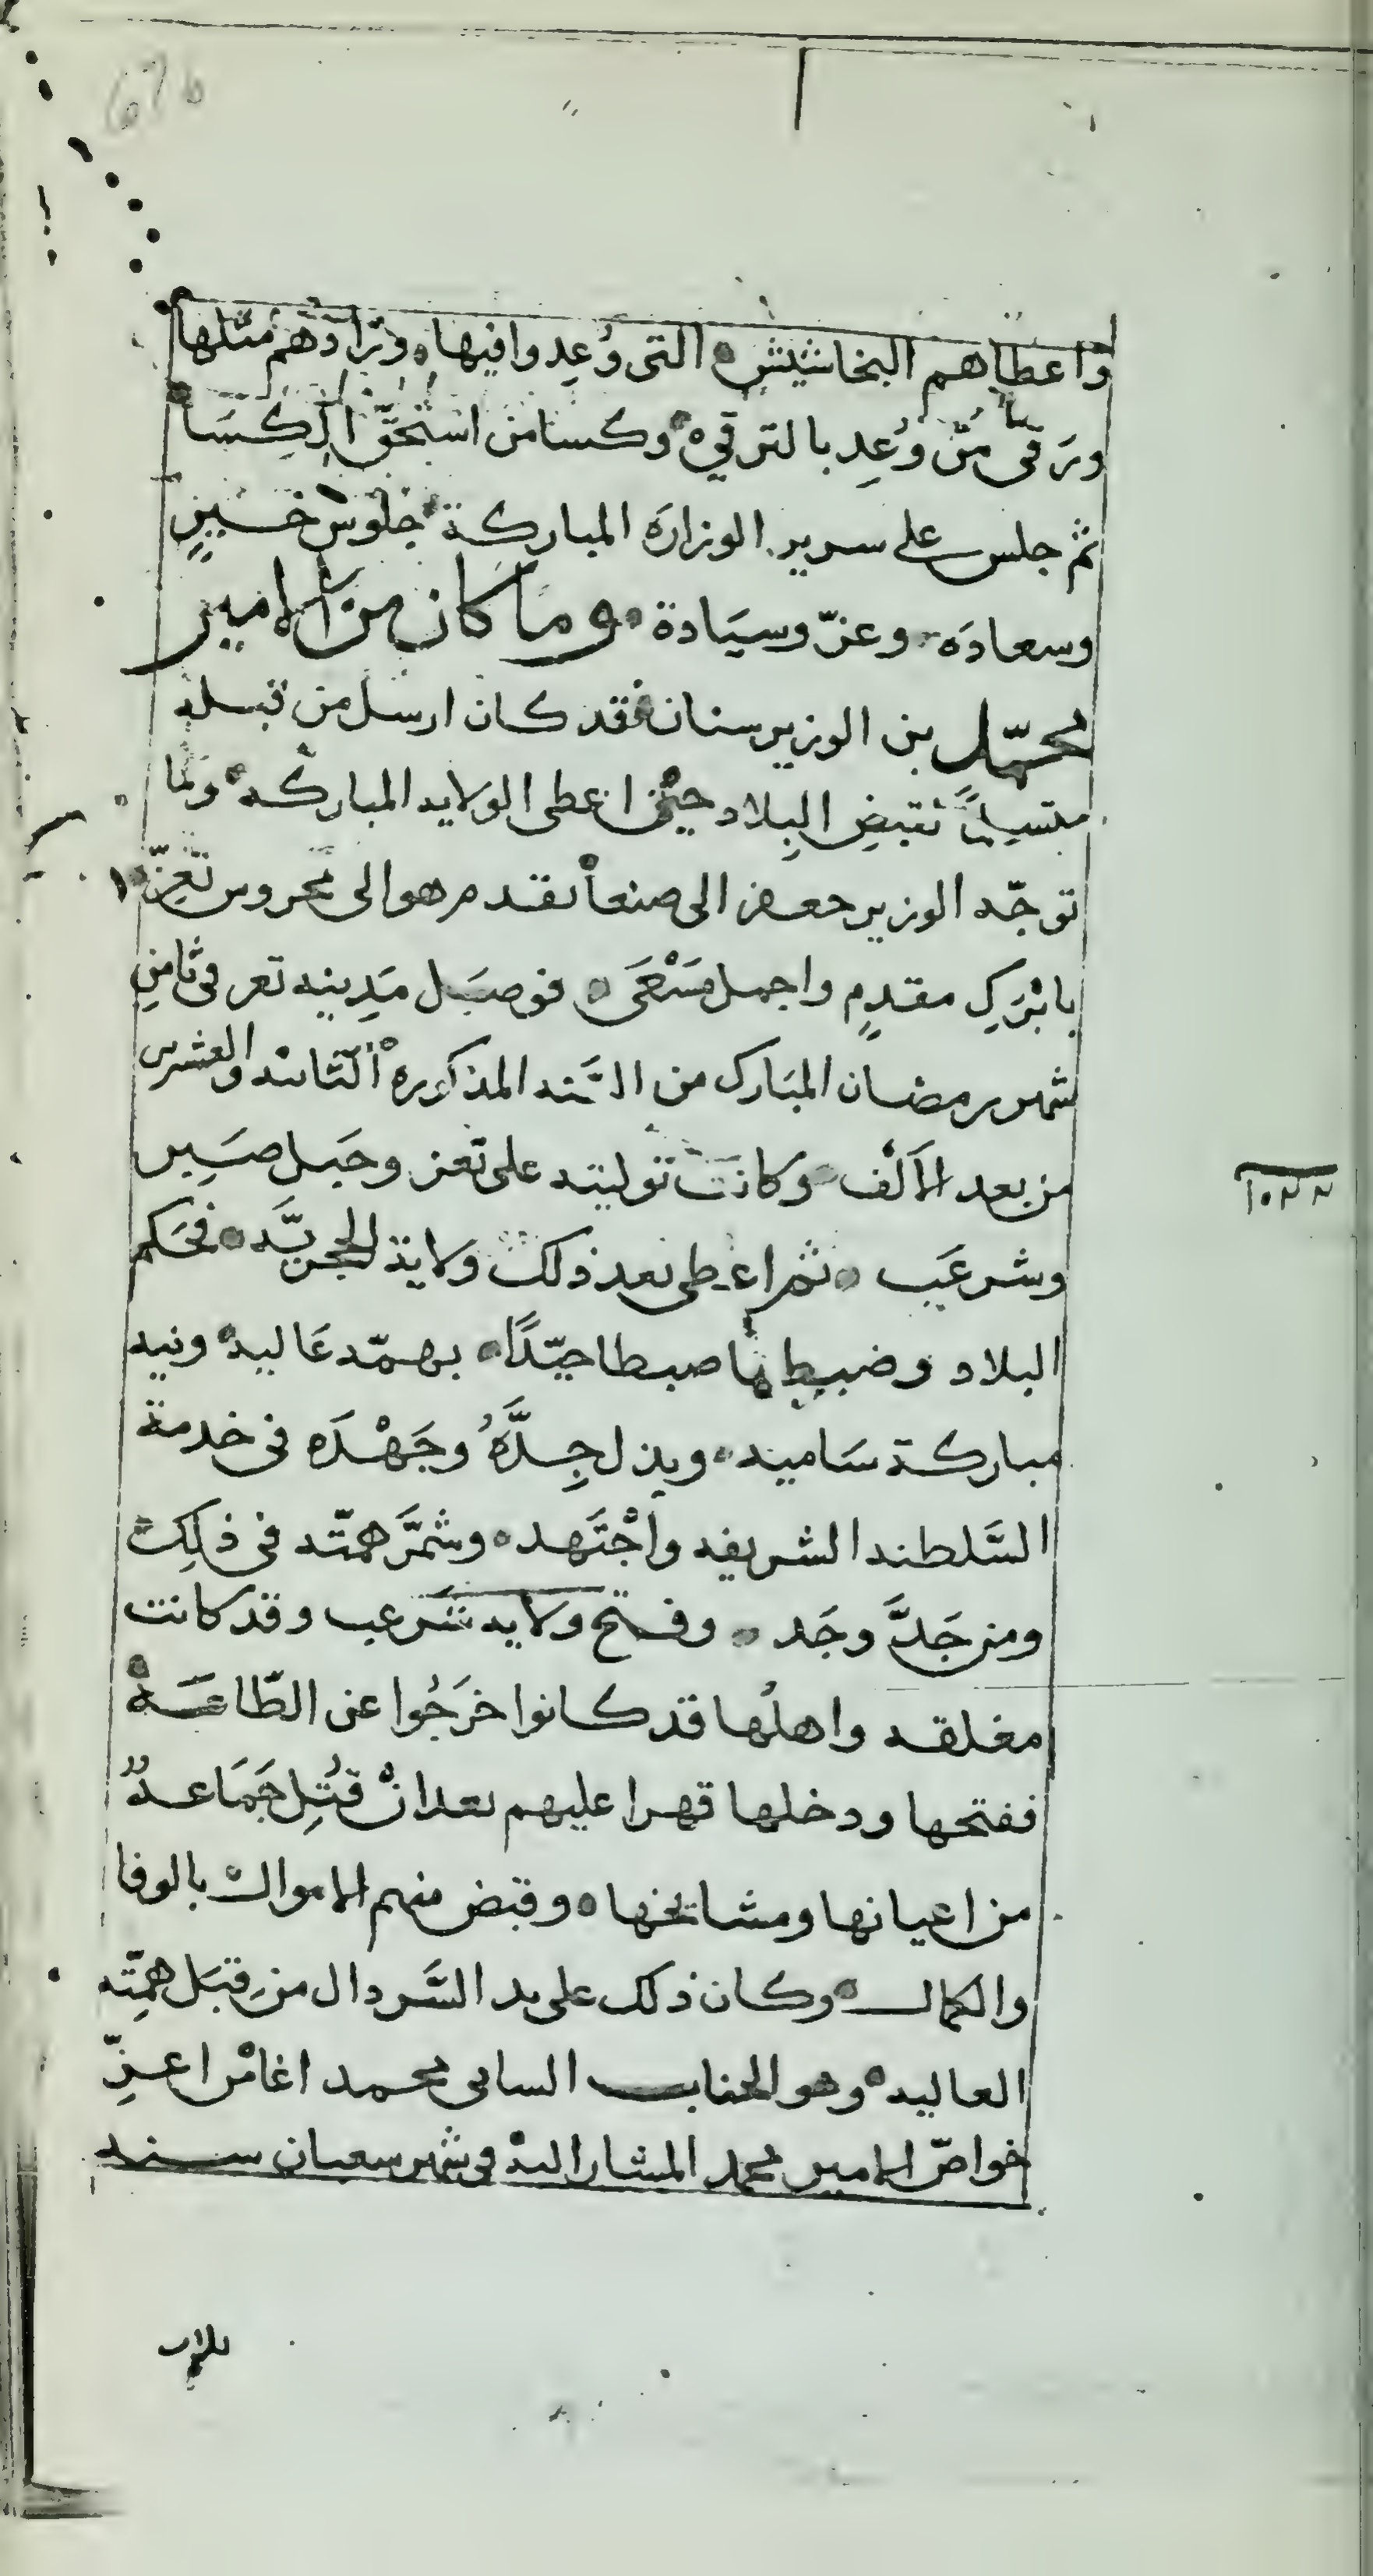 واعطاهم البخاشيش التى وُعِدوا فيها وزادهم مثلها
ورَقّى مَنْ وُعِد بالترقيه وكسا من استحَقّ الكِسَا
ثم جلس على سرير الوزارة المباركة جلوس خَيرٍ
وسعادَه وعزّ وسيَادة وما كان من الامير
محمّد بن الوزير سنان فقد كان ارسل من قبله
متسلماً يقبض البِلاد حين اعطى الولايه المباركه ولما
توجّه الوزير جعفر الى صنعا تقدم هو الى محروس تَعِزّ
بابْرَكِ مقدمٍ واجمل مَسْعَى فوصَل مَدِينه تعز فى ثامن
شهر رمضان المبَارك من السَّنه المذكوره الثانيه والعشرين
من بعد الاَلْف وكانت توليته على تعز وجبل صَبِر
وشرعَب ثم اعطى بعد ذلك ولاية الحجريَّه فحكم
البلاد وضبطها ضبطا جيّدًا بهمّه عَاليه ونيه
مباركة سَاميه وبذل جِدَّهُ وجَهْدَه فى خدمة
السَّلطنه الشريفه واجْتَهد وشمَّر همّته فى ذلِك
ومن جَدَّ وجَد وفتح ولايه شَرعب وقد كانت
مغلقه واهلُها قد كانوا خرَجُوا عن الطّاعَهْ
ففتحها ودخلها قهرا عليهم بعد انْ قُتِل جَمَاعهٌ
من اعيانها ومشايخها وقبض منهم الاموال بالوفا
والكمال وكان ذلك على يد السَّردال من قِبَل هِمّته
العاليه وهو الجناب السامى محمد اغا من اعزّ
خواصّ الامير محمد المشار اليه فى شهر شعبان سنه
١٠٢٢